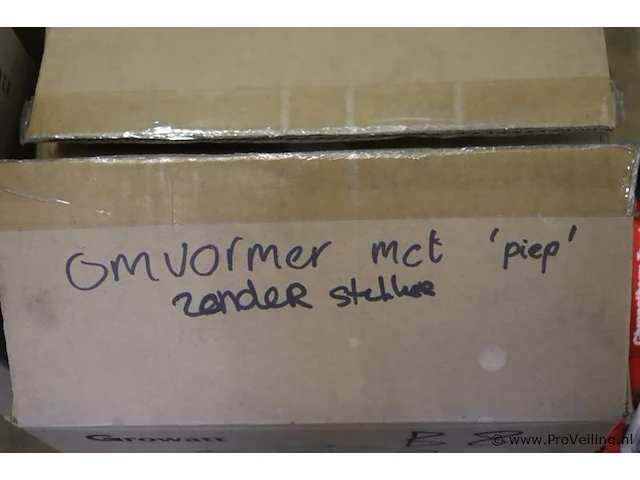 omvormer met 'piep'
zonder stekker
Growatt B 8
© www.ProVeiling.nl